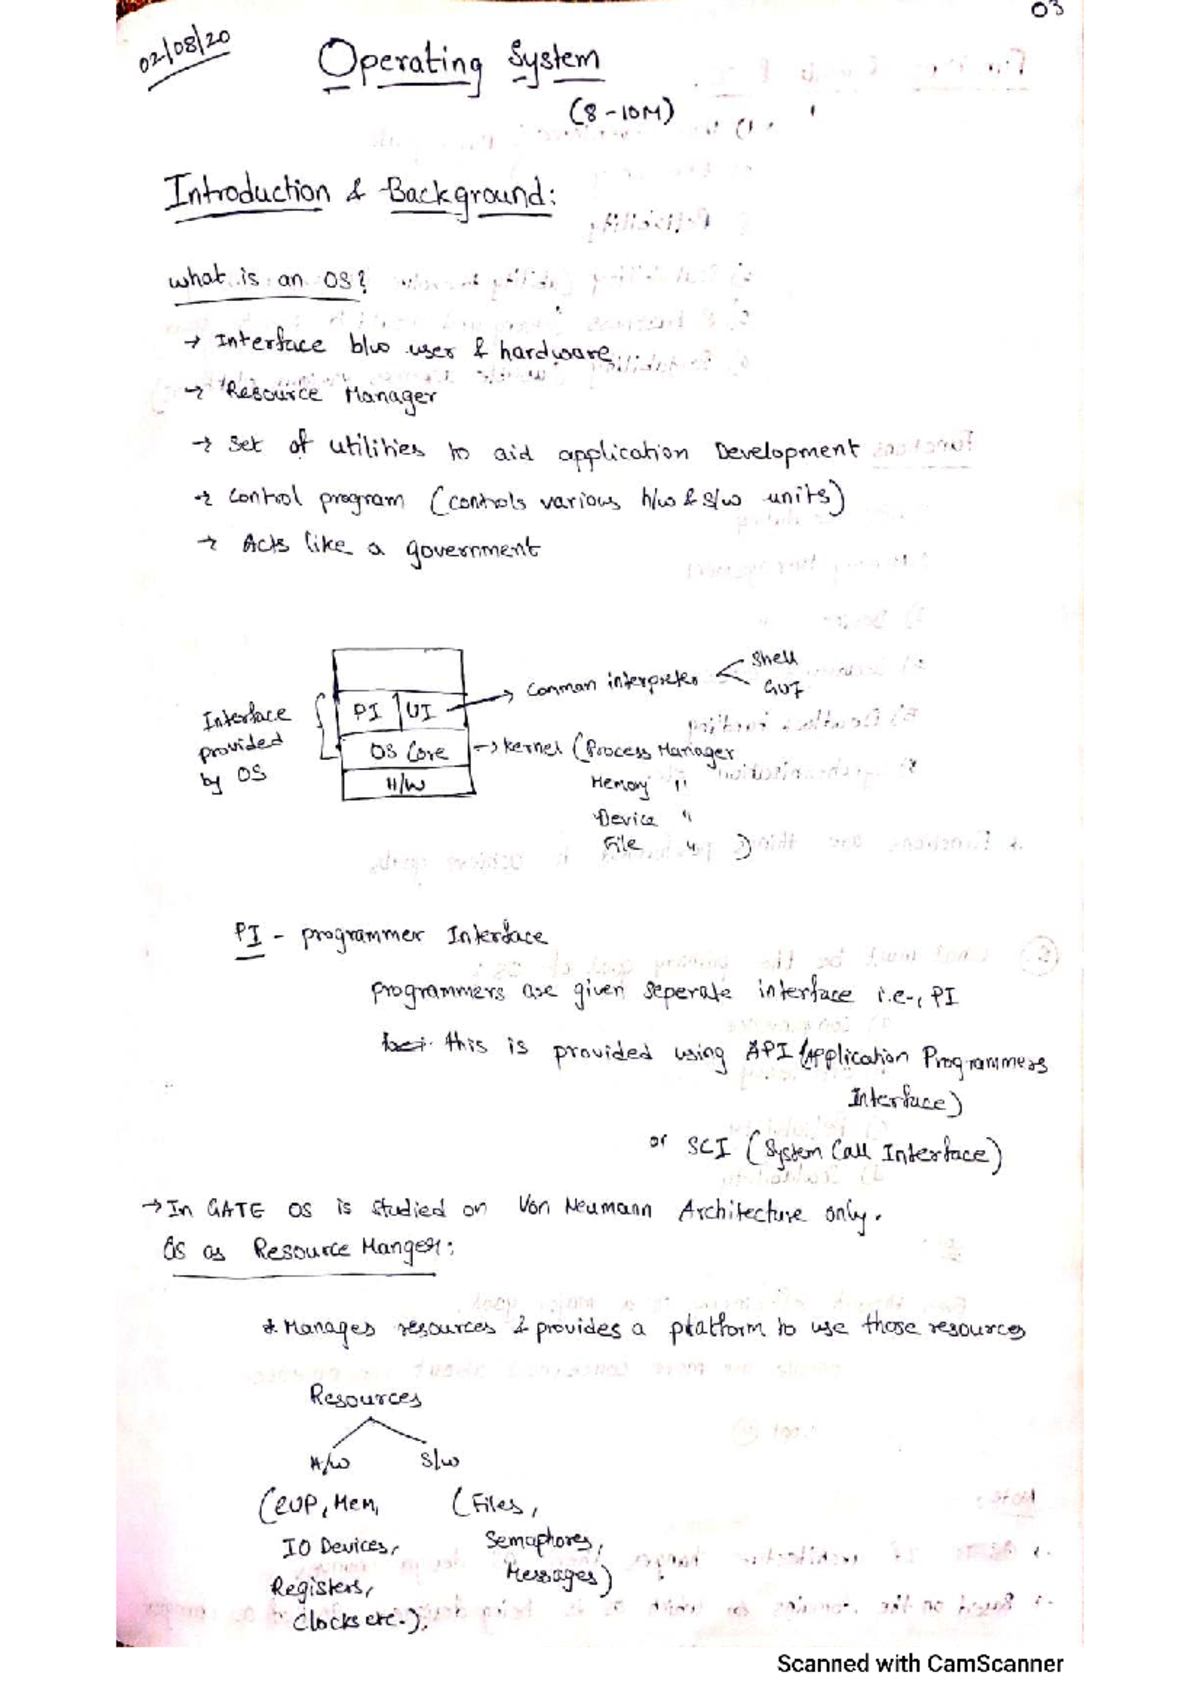 03
02/08/20
Operating System
(8-10M)
Introduction & Background:
what is an OS?
→ Interface b/w user & hardware
→ Resource Manager
→ Set of utilities to aid application Development
→ control program (controls various h/w & s/w units)
→ Acts like a government
Interface provided by OS
PI UI → Common interpreter
Shell
GUI
OS Core → kernel (Process Manager
H/W
Memory "
Device "
File " )
PI - programmer Interface
programmers are given seperate interface i.e., PI
this is provided using API (Application Programmers
Interface)
or SCI (System Call Interface)
→ In GATE OS is studied on Von Neumann Architecture only.
OS as Resource Manger:
* Manages resources & provides a platform to use those resources
Resources
H/W S/W
(CUP, Mem, (Files,
IO Devices, Semaphores,
Registers, Messages)
Clocks etc.),
Scanned with CamScanner